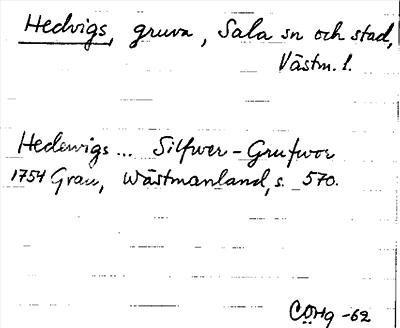 Hedvigs, gruva, Sala sn och stad,
Västm. l.
Hedewigs ... Silfwer-Grufwor
1754 Grau, Wästmanland, s. 570.
CÖHg -62